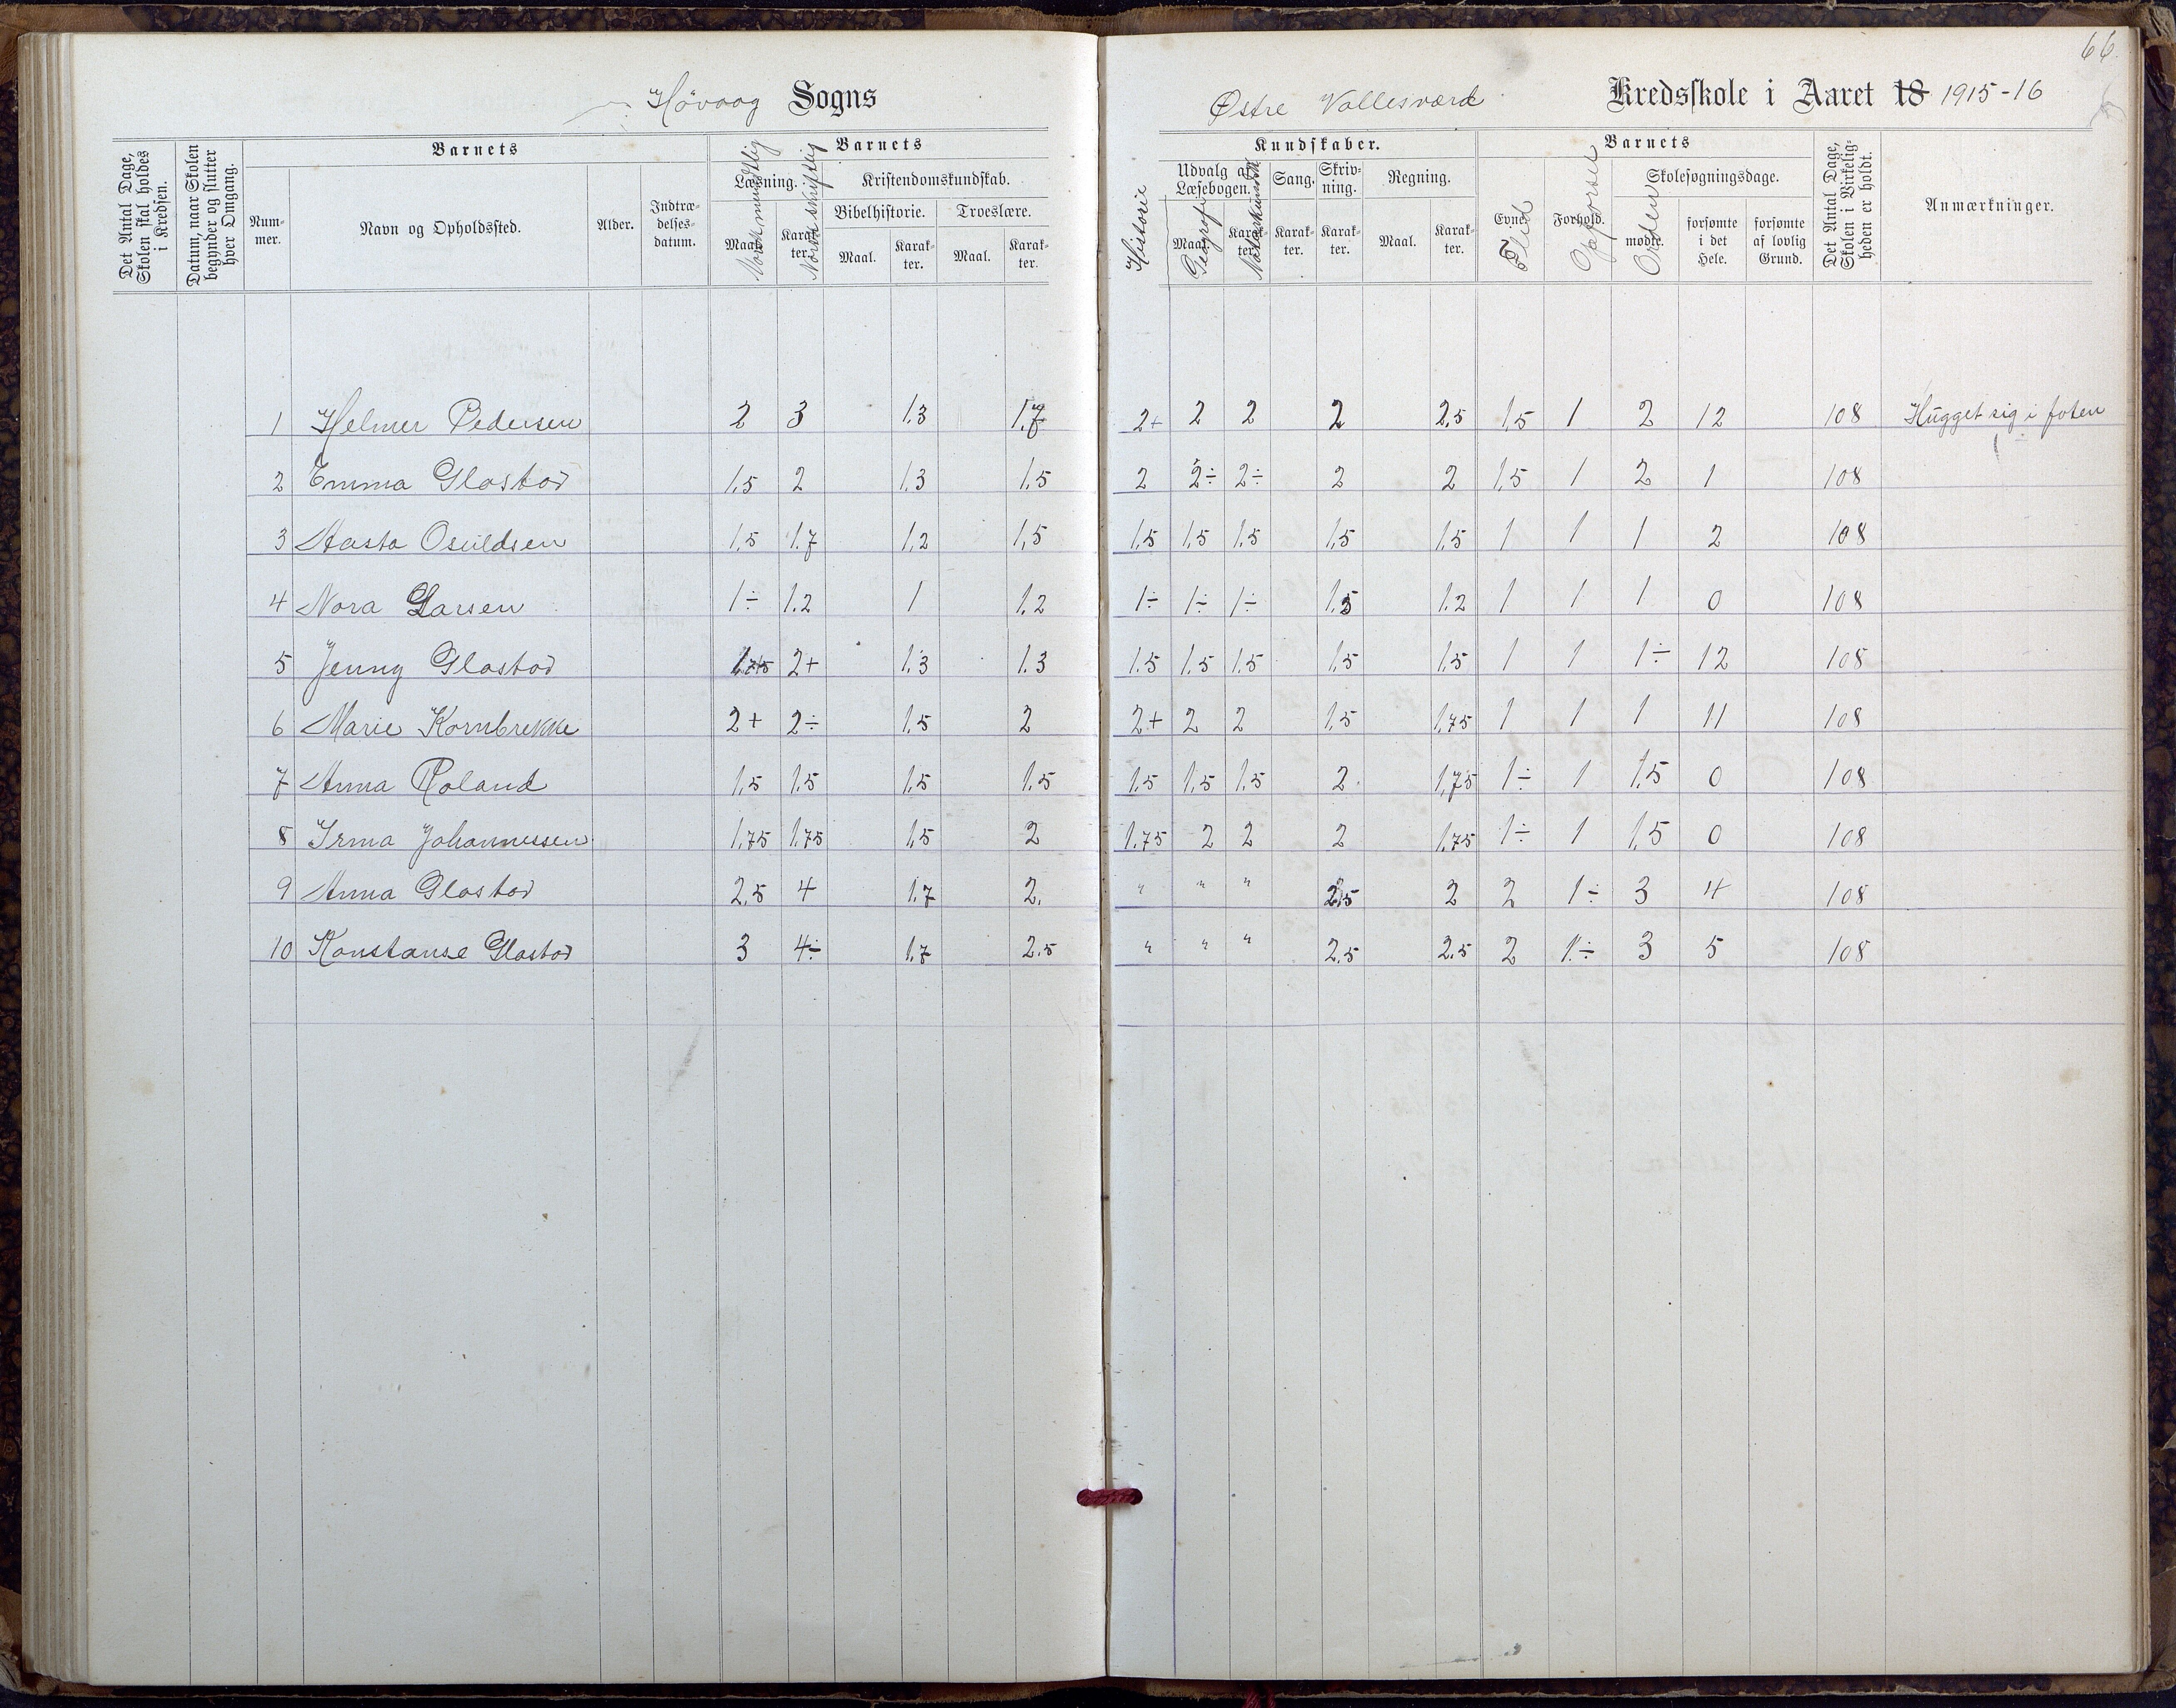 66.
Høvaag Sogns
Østre Vallesværd Kredsskole i Aaret 18 1915-16
Det Antal Dage, Skolen skal holdes i Kredsen.
Datum, naar Skolen begynder og slutter hver Omgang.
Barnets
Nummer.
Navn og Opholdssted.
Alder.
Indtrædelsesdatum.
Barnets
Læsning.
Maal.
Karakter.
Norsk mundtlig
Norsk skriftlig
Kristendomskundskab.
Bibelhistorie.
Maal.
Karakter.
Troeslære.
Maal.
Karakter.
Historie
Kundskaber.
Udvalg af Læsebogen.
Maal.
Karakter.
Geografi
Naturkundskab
Sang.
Karakter.
Skrivning.
Karakter.
Regning.
Maal.
Karakter.
Barnets
Evner.
Flid
Forhold.
Opførsel
Skolesøgningsdage.
mødte.
Orden
forsømte i det Hele.
forsømte af lovlig Grund.
Det Antal Dage, Skolen i Virkeligheden er holdt.
Anmærkninger.
1 Helmer Pedersen 2 3 1.3 1.7 2+ 2 2 2 2.5 1.5 1 2 12 108 Hugget sig i foten
2 Emma Glastad 1.5 2 1.3 1.5 2 2÷ 2÷ 2 2 1.5 1 2 1 108
3 Aasta Osuldsen 1.5 1.7 1.2 1.5 1.5 1.5 1.5 1.5 1.5 1 1 1 2 108
4 Nora Larsen 1÷ 1.2 1 1.2 1÷ 1÷ 1÷ 1.5 1.2 1 1 1 0 108
5 Jenny Glastad 1.75 2+ 1.3 1.3 1.5 1.5 1.5 1.5 1.5 1 1 1÷ 12 108
6 Marie Kornbrekke 2+ 2÷ 1.5 2 2+ 2 2 1.5 1.75 1 1 1 11 108
7 Anna Roland 1.5 1.5 1.5 1.5 1.5 1.5 1.5 2 1.75 1÷ 1 1.5 0 108
8 Irma Johannessen 1.75 1.75 1.5 2 1.75 2 2 2 1.75 1÷ 1 1.5 0 108
9 Anna Glastad 2.5 4 1.7 2. " " " 2.5 2 2 1÷ 3 4 108
10 Konstanse Glastad 3 4÷ 1.7 2.5 " " " 2.5 2.5 2 1÷ 3 5 108